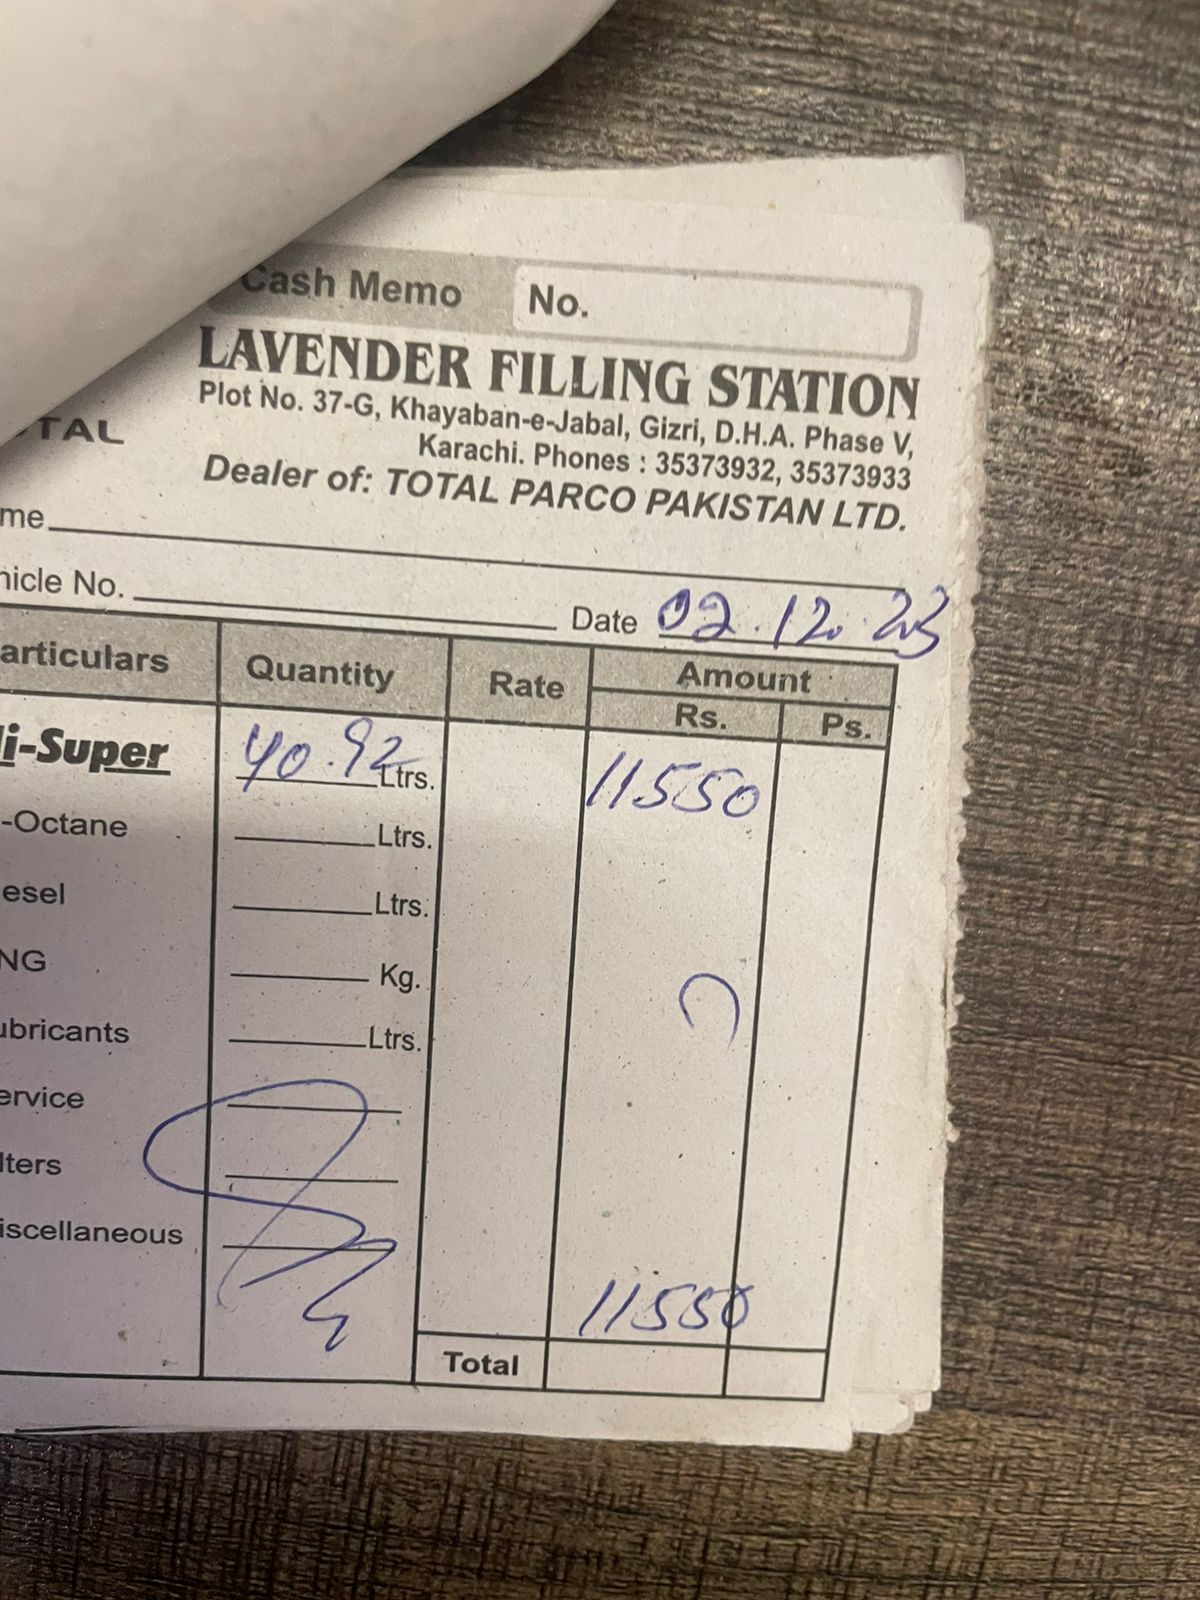 Cash Memo No.
LAVENDER FILLING STATION
Plot No. 37-G, Khayaban-e-Jabal, Gizri, D.H.A. Phase V,
Karachi. Phones : 35373932, 35373933
TAL
Dealer of: TOTAL PARCO PAKISTAN LTD.
me
hicle No. Date 02.12.23
articulars Quantity Rate Amount
Rs. Ps.
i-Super 40.92 Ltrs. 11550
-Octane Ltrs.
esel Ltrs.
NG Kg.
ubricants Ltrs.
ervice
lters
iscellaneous
11550
Total